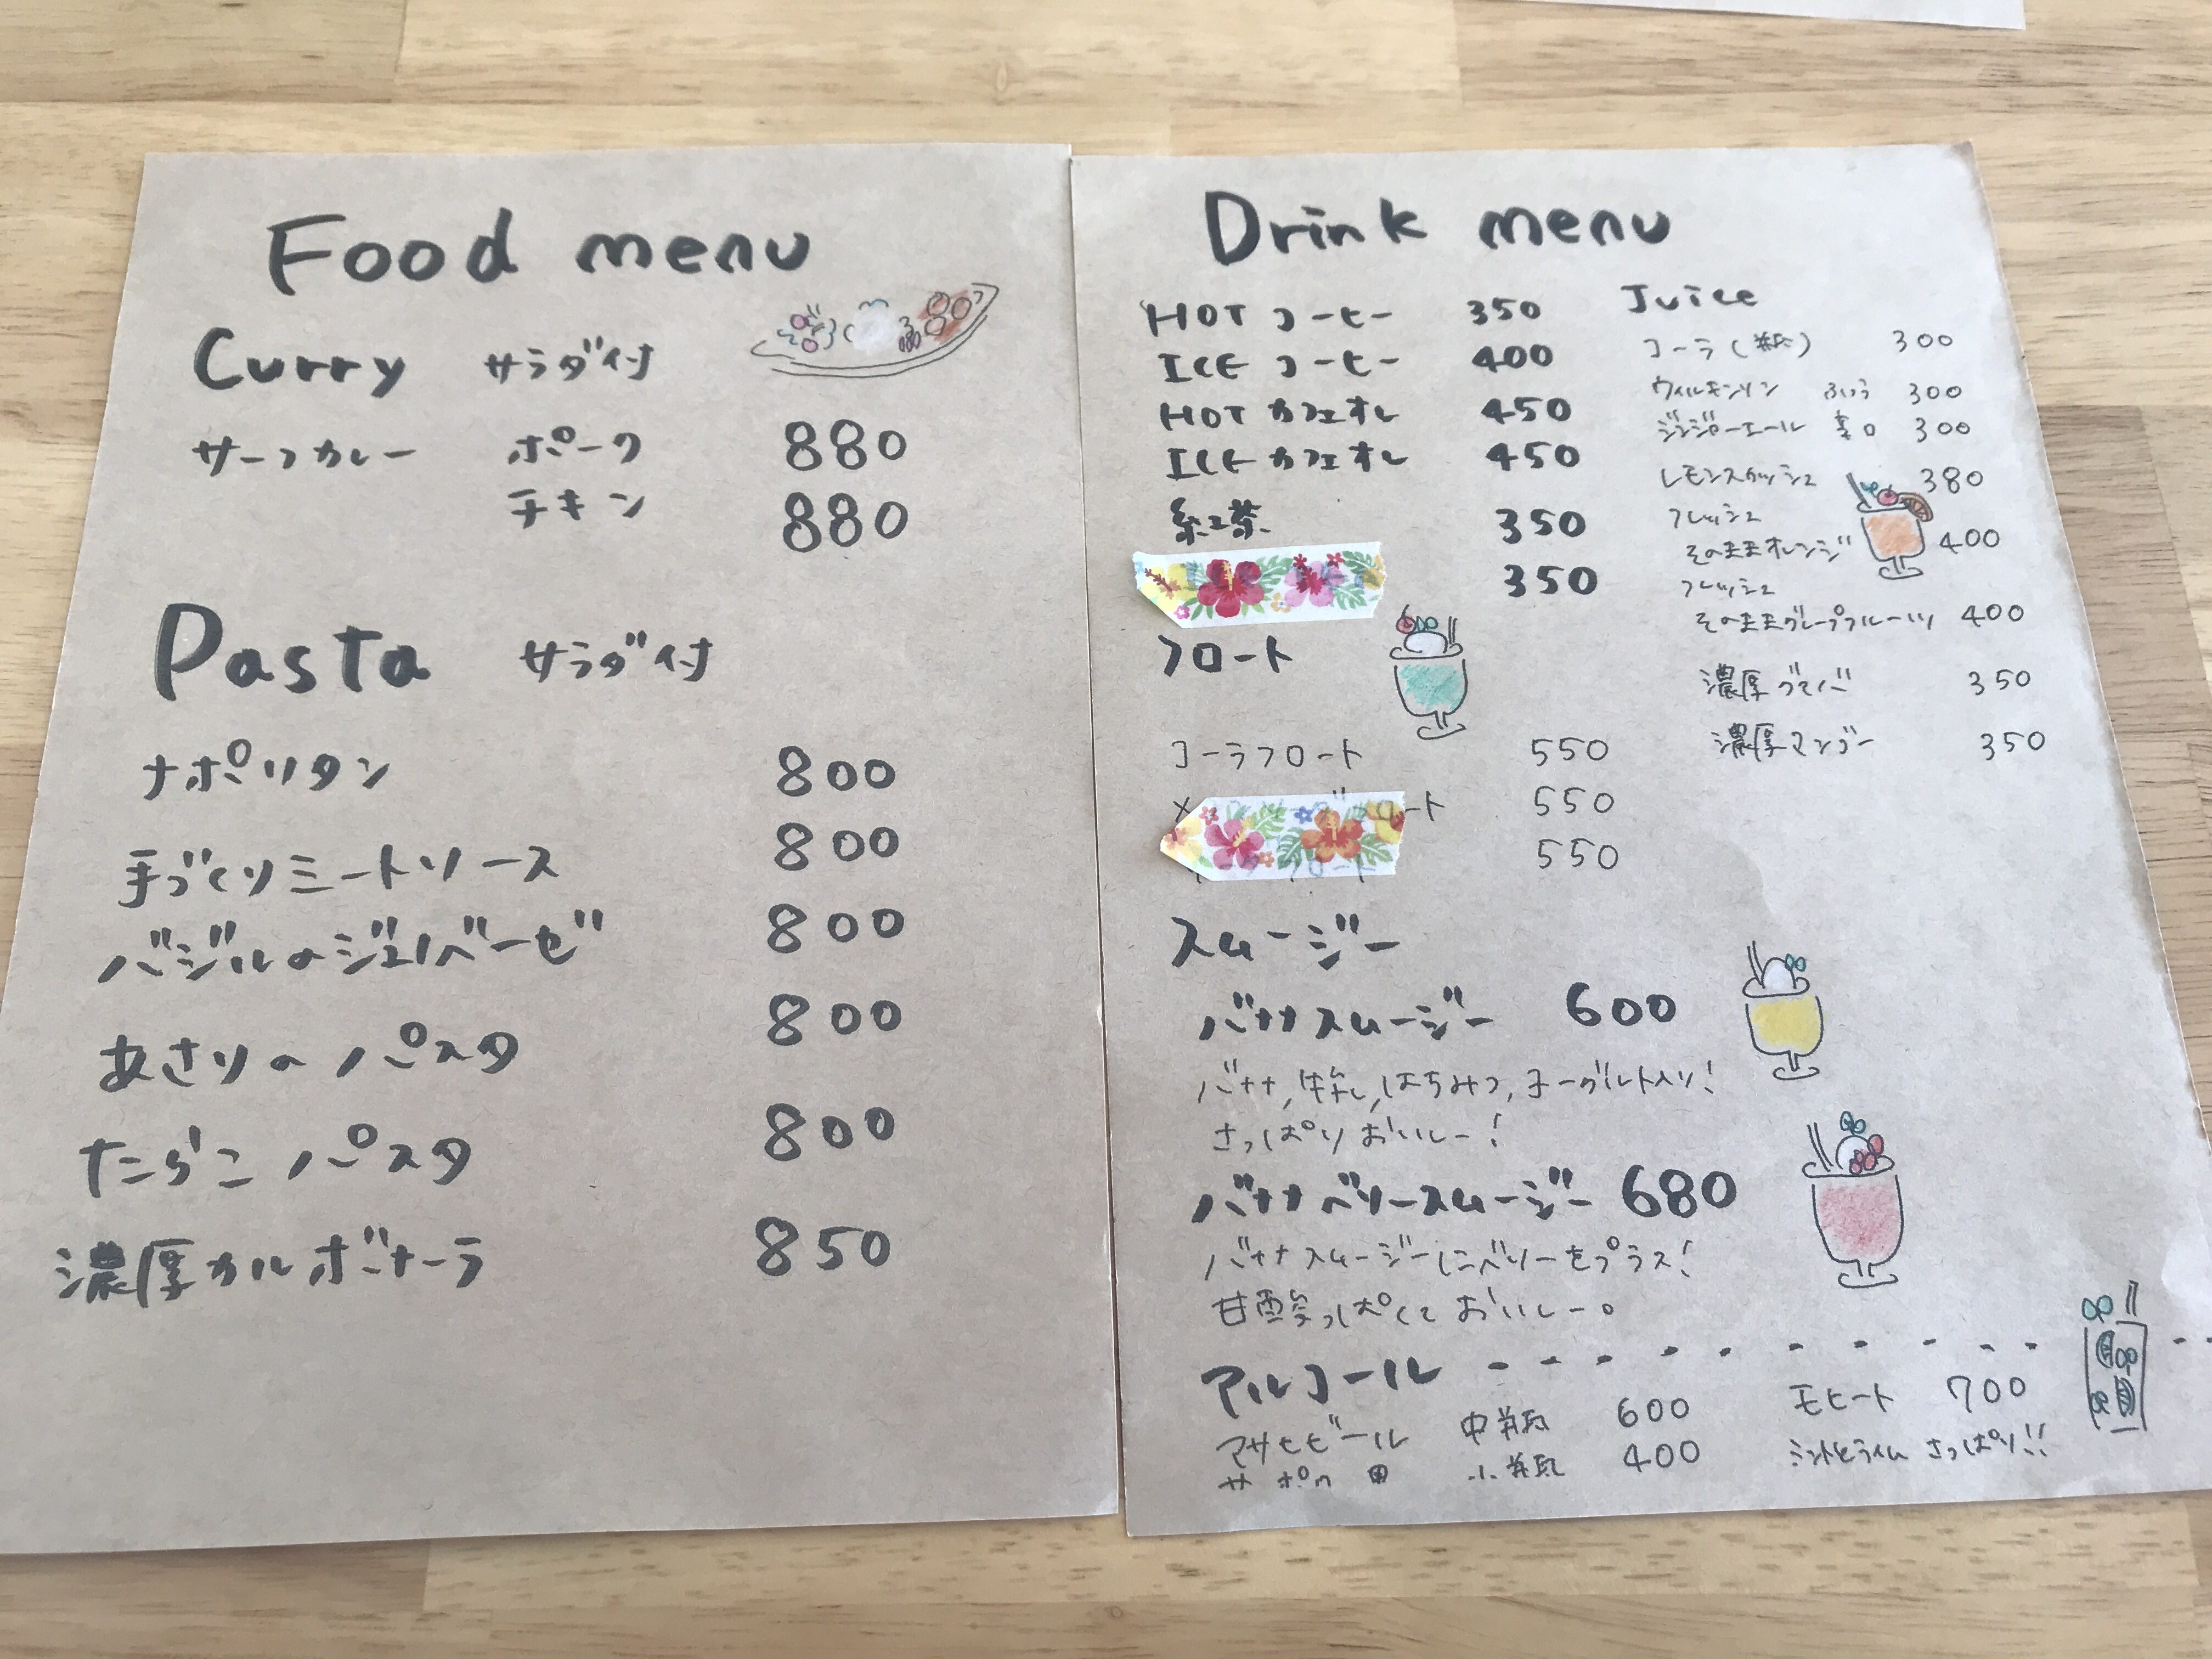 Food menu
Curry サラダ付
サーフカレー ポーク 880
チキン 880
Pasta サラダ付
ナポリタン 800
手づくりミートソース 800
バジルのジェノベーゼ 800
あさりのパスタ 800
たらこパスタ 800
濃厚カルボナーラ 850
Drink menu
HOT コーヒー 350
ICE コーヒー 400
HOT カフェオレ 450
ICE カフェオレ 450
紅茶 350
350
フロート
コーラフロート 550
ート 550
550
Juice
コーラ(瓶) 300
ウィルキンソン ふつう 300
ジンジャーエール 辛口 300
レモンスカッシュ 380
フレッシュ
そのままオレンジ 400
フレッシュ
そのままグレープフルーツ 400
濃厚グァバ 350
濃厚マンゴー 350
スムージー
バナナスムージー 600
バナナ,牛乳,はちみつ,ヨーグルト入り!
さっぱりおいしー!
バナナベリースムージー 680
バナナスムージーにベリーをプラス!
甘酸っぱくておいしー。
アルコール
アサヒビール 中瓶 600
サッポロ黒 小瓶 400
モヒート 700
ミントとライム さっぱり!!